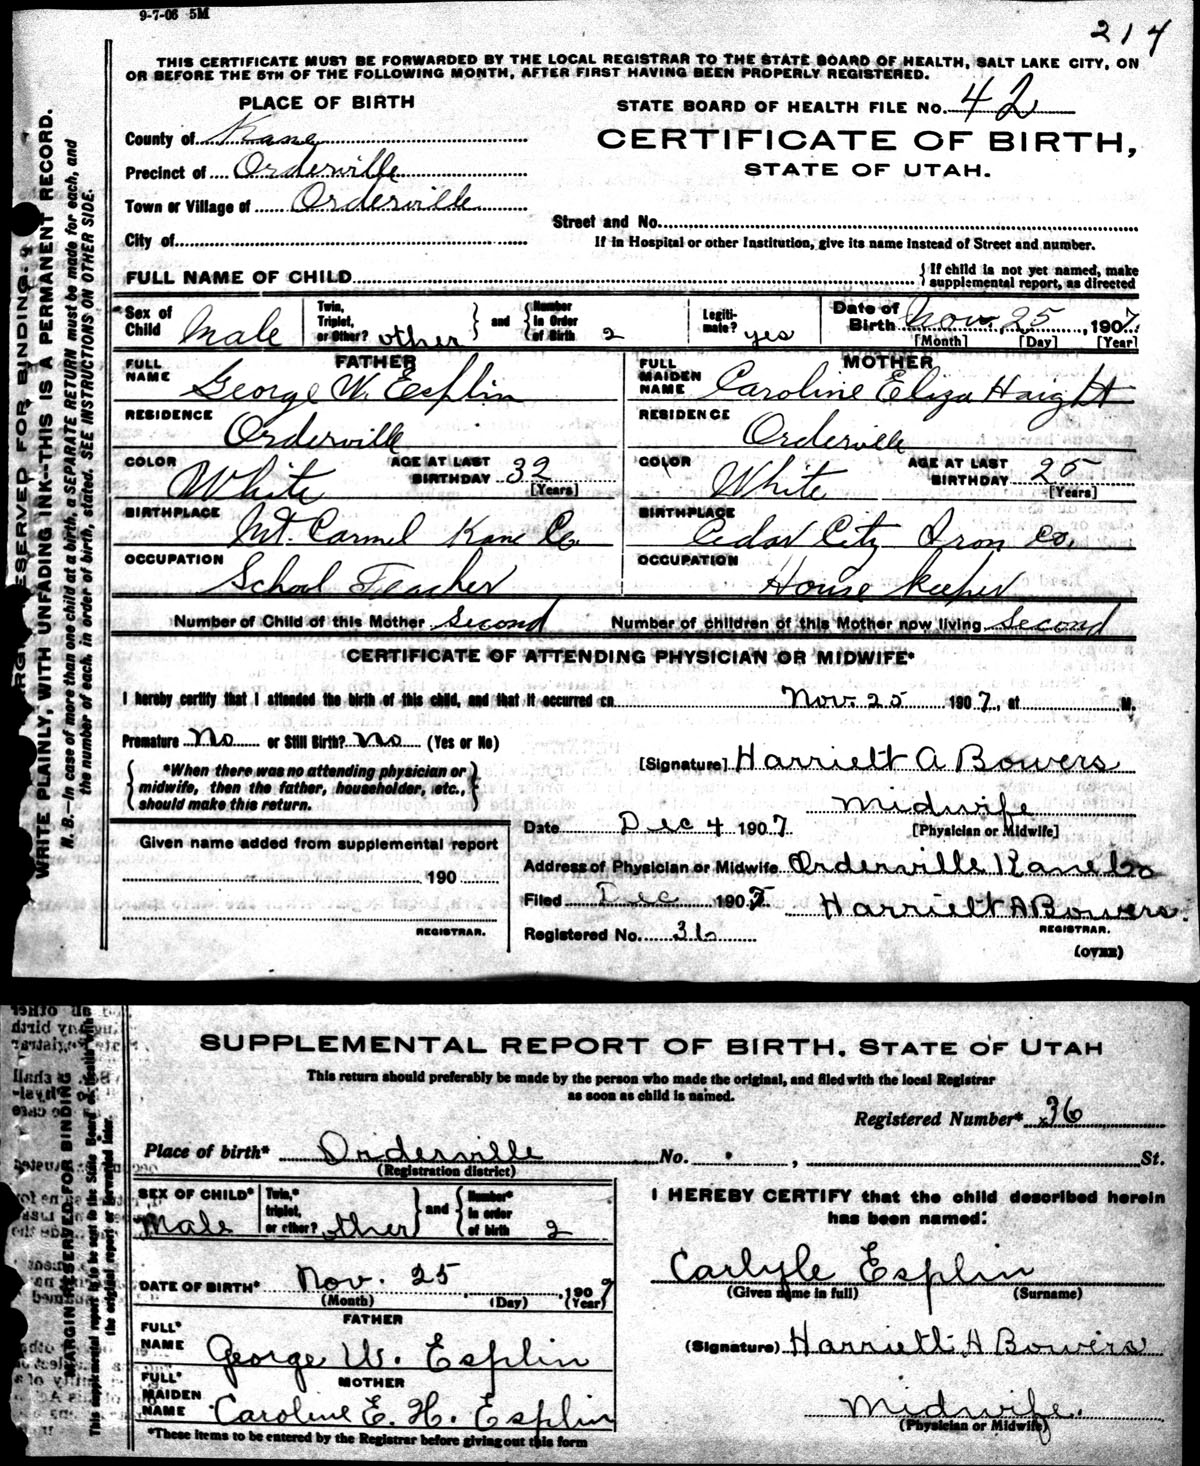 9-7-06 5M
214
THIS CERTIFICATE MUST BE FORWARDED BY THE LOCAL REGISTRAR TO THE STATE BOARD OF HEALTH, SALT LAKE CITY, ON
OR BEFORE THE 5TH OF THE FOLLOWING MONTH, AFTER FIRST HAVING BEEN PROPERLY REGISTERED.
PLACE OF BIRTH
STATE BOARD OF HEALTH FILE No. 42
County of Kane
CERTIFICATE OF BIRTH,
Precinct of Orderville
STATE OF UTAH.
Town or Village of Orderville
Street and No.
City of
If in Hospital or other Institution, give its name instead of Street and number.
FULL NAME OF CHILD
{ If child is not yet named, make
supplemental report, as directed
Sex of Child Male
Twin, Triplet, or Other? other } and { Number in Order of Birth 2
Legiti-mate? yes
Date of Birth Nov. 25, 1907
[Month] [Day] [Year]
FATHER
FULL NAME George W. Esplin
MOTHER
FULL MAIDEN NAME Caroline Eliza Haight
RESIDENCE Orderville
RESIDENCE Orderville
COLOR White AGE AT LAST BIRTHDAY 32 [Years]
COLOR White AGE AT LAST BIRTHDAY 25 [Years]
BIRTHPLACE Mt. Carmel Kane Co.
BIRTHPLACE Cedar City Iron Co.
OCCUPATION School Teacher
OCCUPATION House keeper
Number of Child of this Mother Second Number of children of this Mother now living Second
CERTIFICATE OF ATTENDING PHYSICIAN OR MIDWIFE*
I hereby certify that I attended the birth of this child, and that it occurred on Nov. 25 1907, at M.
Premature No or Still Birth? No (Yes or No)
{ *When there was no attending physician or
midwife, then the father, householder, etc.,
should make this return. }
[Signature] Harriett A Bowers
Midwife
[Physician or Midwife]
Date Dec 4 1907
Given name added from supplemental report
190
REGISTRAR.
Address of Physician or Midwife Orderville Kane Co
Filed Dec 1907 Harriett A Bowers
REGISTRAR.
Registered No. 36
(OVER)
MARGIN RESERVED FOR BINDING.
WRITE PLAINLY, WITH UNFADING INK--THIS IS A PERMANENT RECORD.
N. B.--In case of more than one child at a birth, a SEPARATE RETURN must be made for each, and
the number of each, in order of birth, stated. SEE INSTRUCTIONS ON OTHER SIDE.
SUPPLEMENTAL REPORT OF BIRTH, STATE OF UTAH
This return should preferably be made by the person who made the original, and filed with the local Registrar
as soon as child is named.
Registered Number* 36
Place of birth* Orderville No. , St.
(Registration district)
SEX OF CHILD* Male
Twin,* triplet, or other? other } and { Number* in order of birth 2
I HEREBY CERTIFY that the child described herein
has been named:
DATE OF BIRTH* Nov. 25 1907
(Month) (Day) (Year)
Carlyle Esplin
(Given name in full) (Surname)
FATHER
FULL* NAME George W. Esplin
(Signature) Harriett A Bowers
MOTHER
FULL* MAIDEN NAME Caroline E. H. Esplin
Midwife.
(Physician or Midwife)
*These items to be entered by the Registrar before giving out this form
MARGIN RESERVED FOR BINDING
This supplemental report is to be sent to the State Board of Health with
the original report or forwarded later.